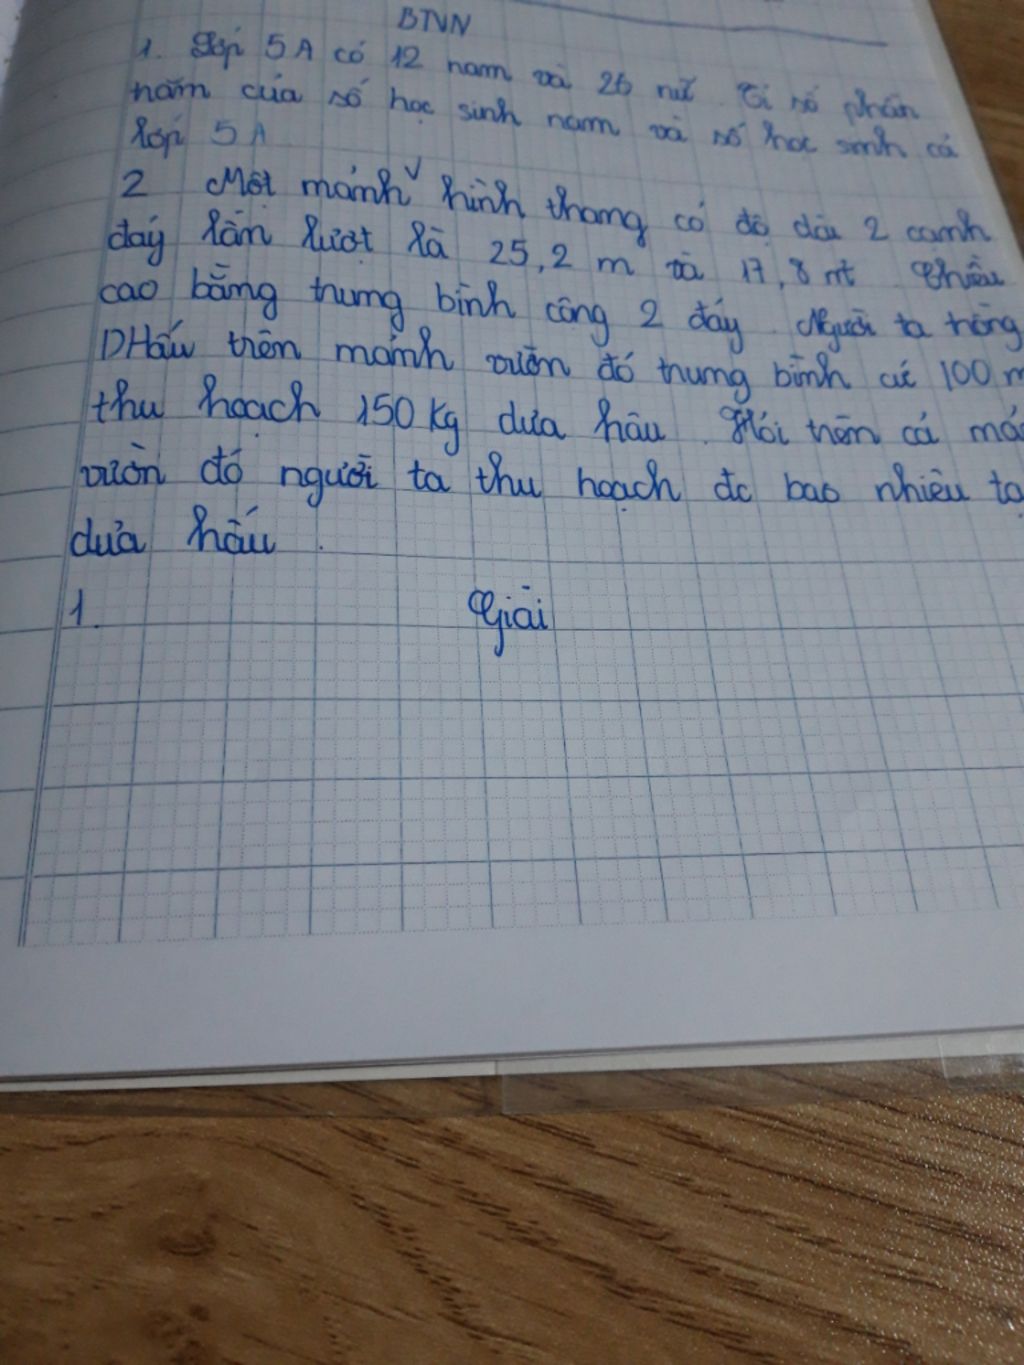 BTVN
1. Lớp 5A có 12 nam và 26 nữ. Tỉ số phần
năm của số học sinh nam và số học sinh cả
lớp 5A
2 Một mảnh v hình thang có độ dài 2 cạnh
đáy lần lượt là 25,2 m và 17,8 m Chiều
cao bằng trung bình cộng 2 đáy. Người ta trồng
DHấu trên mảnh vườn đó trung bình cứ 100 m
thu hoạch 150 kg dưa hấu. Hỏi trên cả mả
vườn đó người ta thu hoạch đc bao nhiêu tạ
dưa hấu.
1. Giải